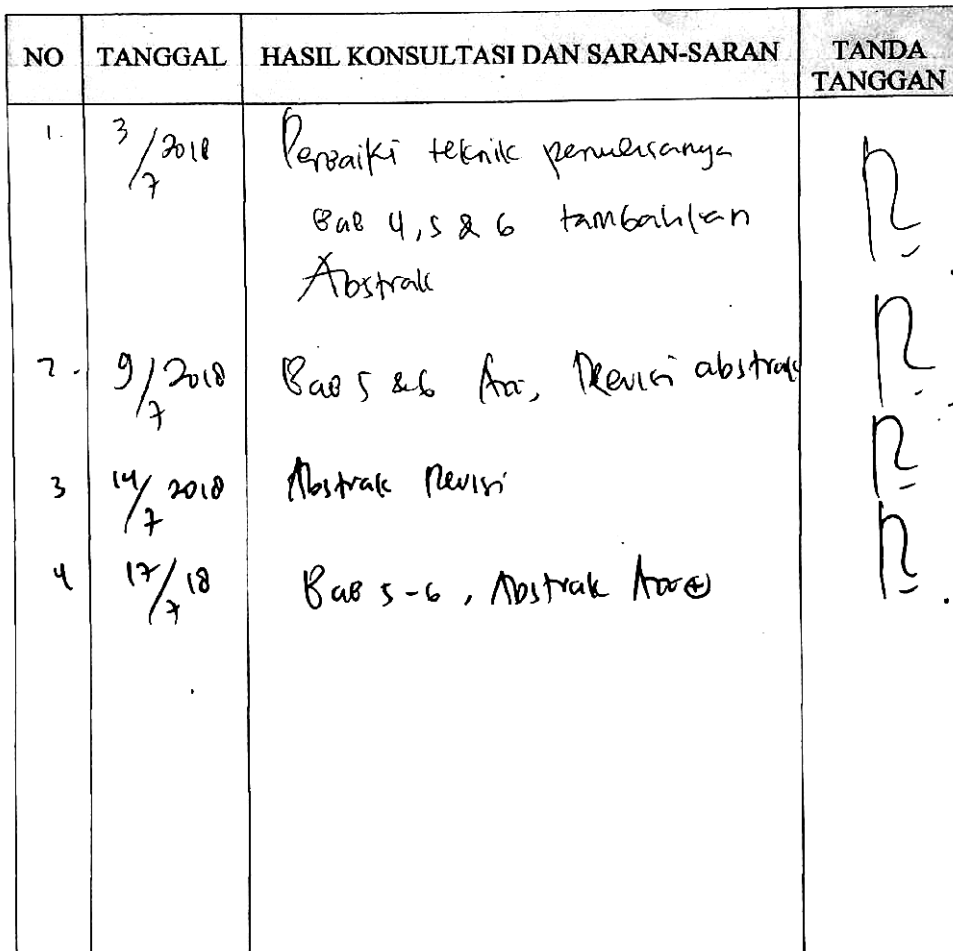 NO TANGGAL HASIL KONSULTASI DAN SARAN-SARAN TANDA TANGGAN
1. 3/7 2018 Perbaiki teknik penulisannya
Bab 4, 5 & 6 tambahkan
Abstrak
2. 9/7 2018 Bab 5 & 6 Acc, Revisi abstrak
3 14/7 2018 Abstrak Revisi
4 17/7 18 Bab 5-6, Abstrak Acc